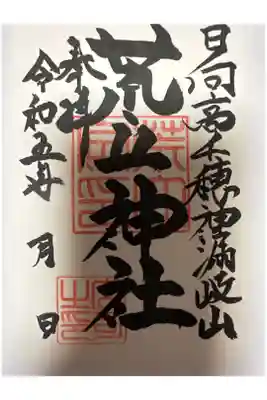 日向高千穂神漏岐山
荒立神社
奉拝
令和五年　月　日